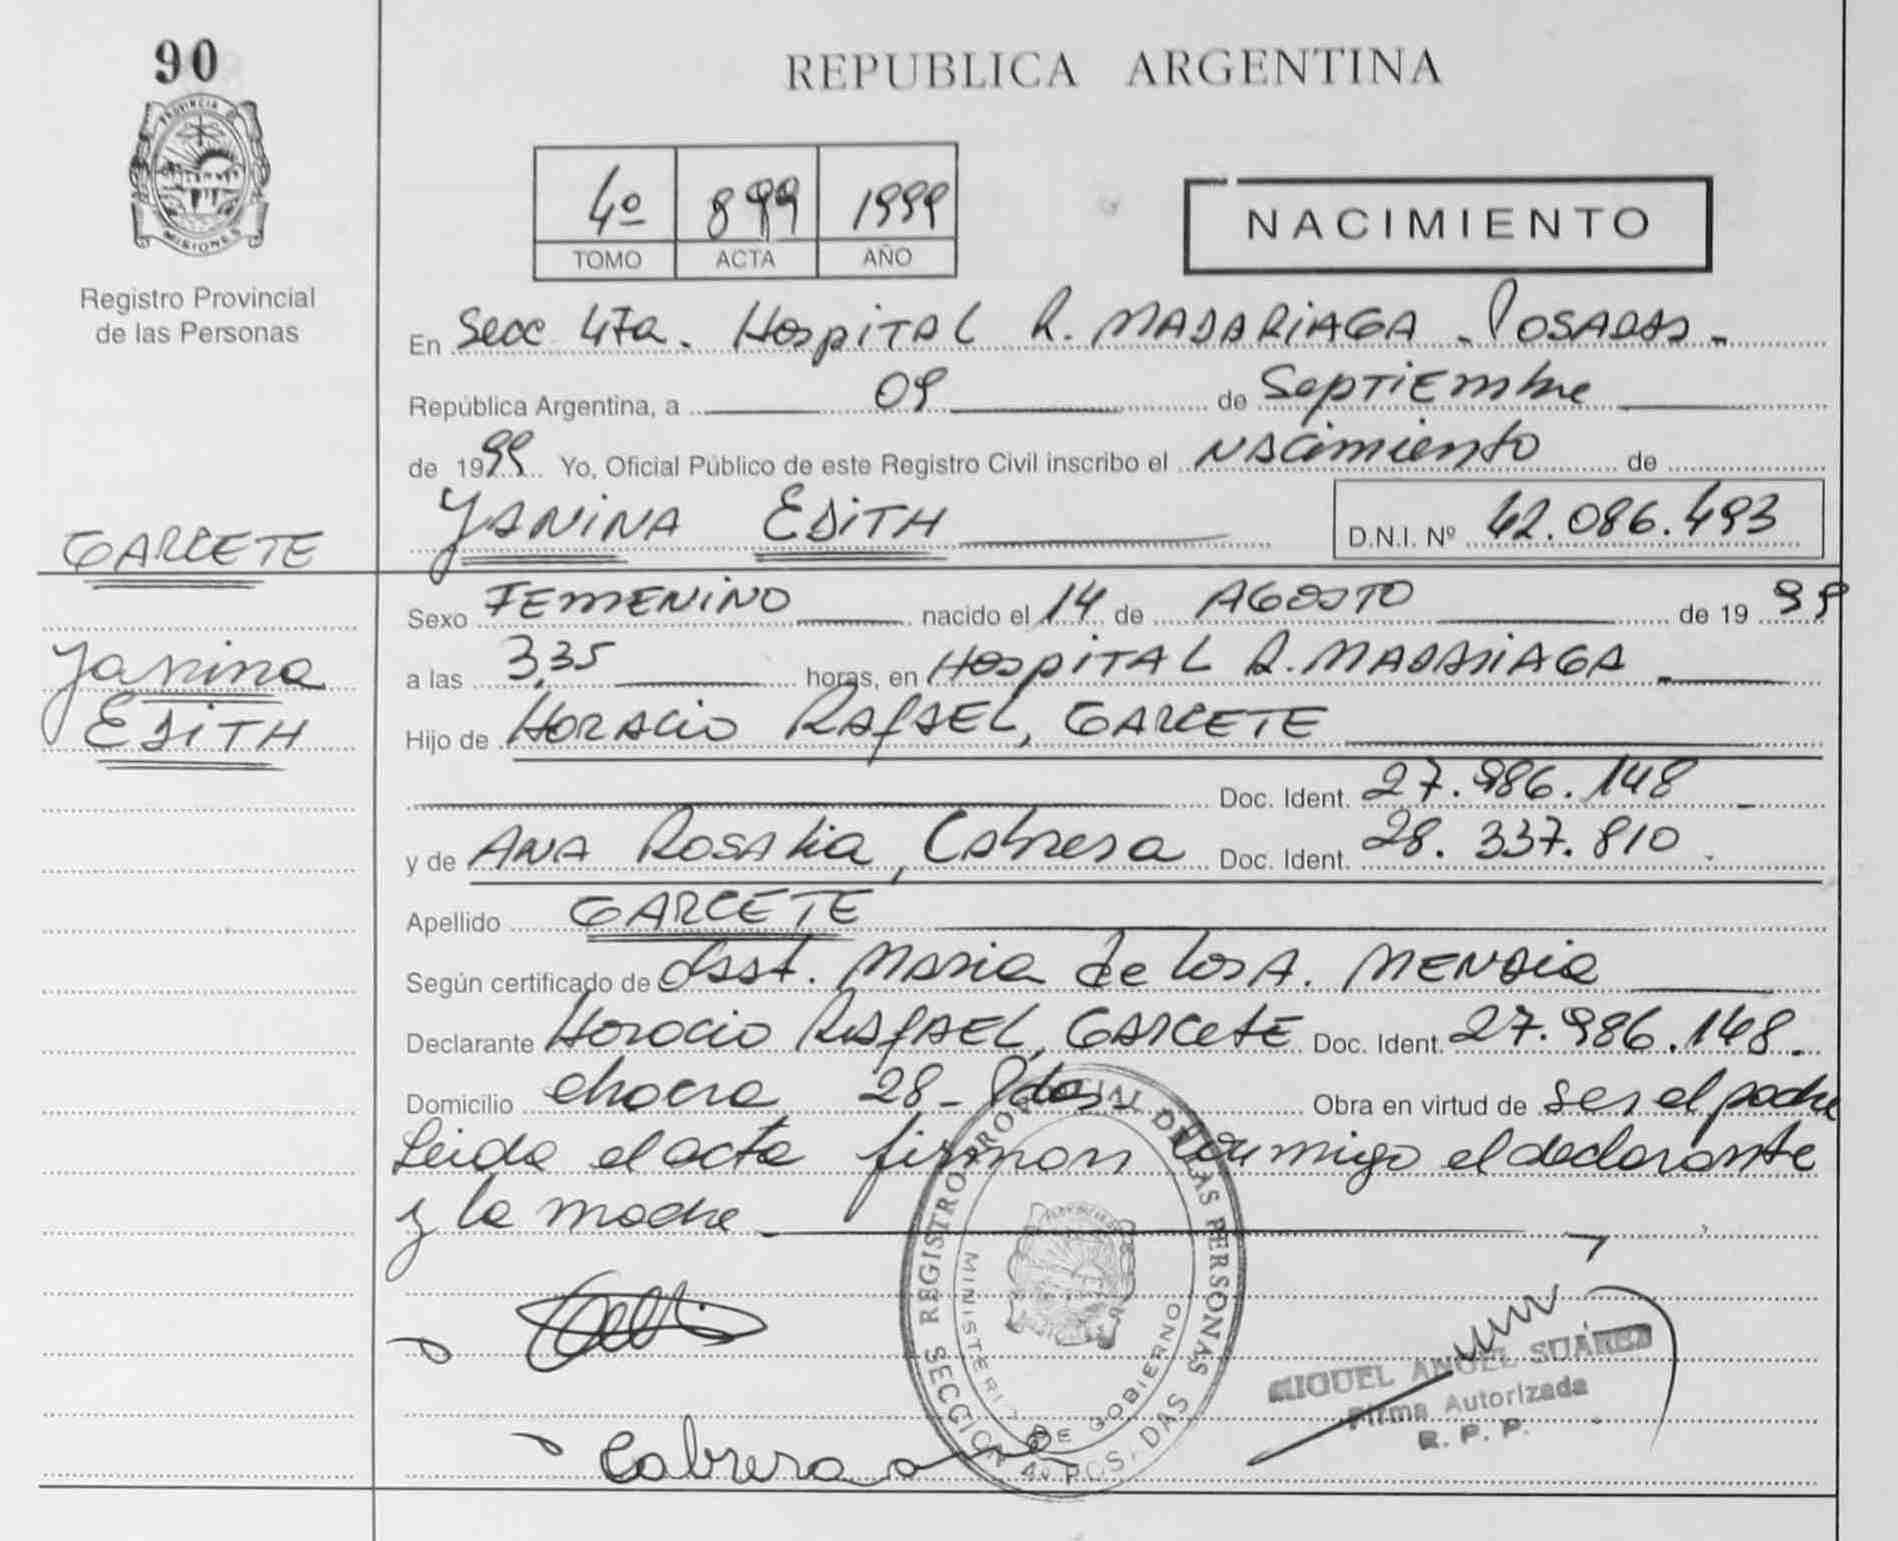 90
REPUBLICA ARGENTINA
PROVINCIA D
MISIONES
4º 899 1999
TOMO ACTA AÑO
NACIMIENTO
Registro Provincial
de las Personas
En Secc 4ta. Hospital R. MADARIAGA - POSADAS -
República Argentina, a 09 de Septiembre
de 1999 Yo, Oficial Público de este Registro Civil inscribo el Nacimiento de
YANINA EDITH D.N.I. Nº 42.086.493
GARCETE
Sexo FEMENINO nacido el 14 de AGOSTO de 19 99
Yanina
a las 3,35 horas, en HOSPITAL R. MADARIAGA
EDITH
Hijo de HORACIO RAFAEL, GARCETE
Doc. Ident. 27.986.148
y de ANA ROSALIA, Cabrera Doc. Ident. 28.337.810
Apellido GARCETE
Según certificado de Obst. Maria de los A. MENDIA
Declarante Horacio RAFAEL, GARCETE Doc. Ident. 27.986.148.
Domicilio chacra 28 - Pdas Obra en virtud de ser el padre
Leida el acta firman conmigo el declarante
y la madre
REGISTRO PROVINCIAL DE LAS PERSONAS
MINISTERIO DE GOBIERNO
SECCION 4º POSADAS
MIGUEL ANGEL SUÁREZ
Firma Autorizada
R. P. P.
Cabrera